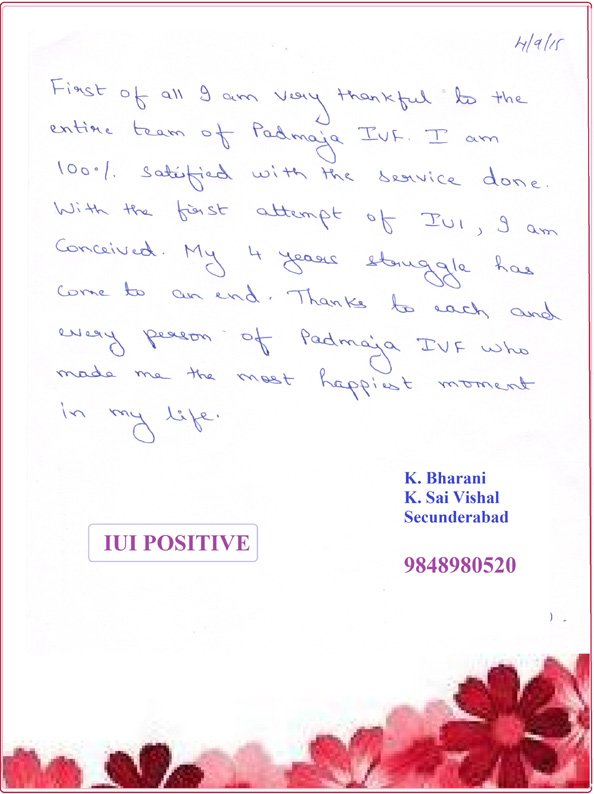 4/9/15
First of all I am very thankful to the
entire team of Padmaja IVF. I am
100%. satisfied with the service done.
With the first attempt of IUI, I am
Conceived. My 4 years struggle has
come to an end. Thanks to each and
every person of Padmaja IVF who
made me the most happiest moment
in my life.
K. Bharani
K. Sai Vishal
Secunderabad
IUI POSITIVE
9848980520